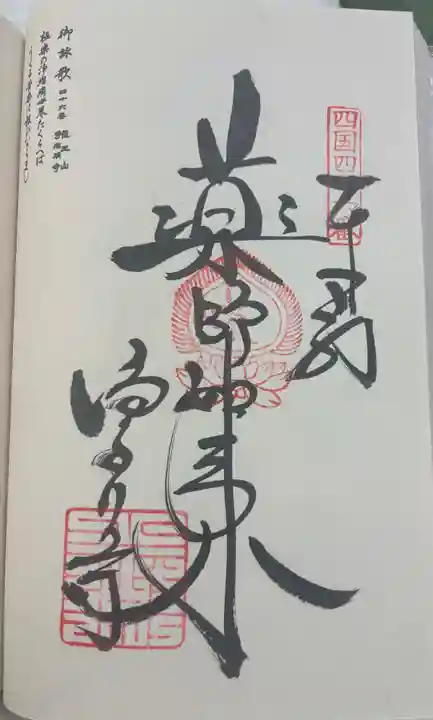 四国四十六番
奉納
薬師如来
浄るり寺
御詠歌 四十六番 醫王山 浄瑠璃寺
極楽の浄瑠璃世界たくらへば